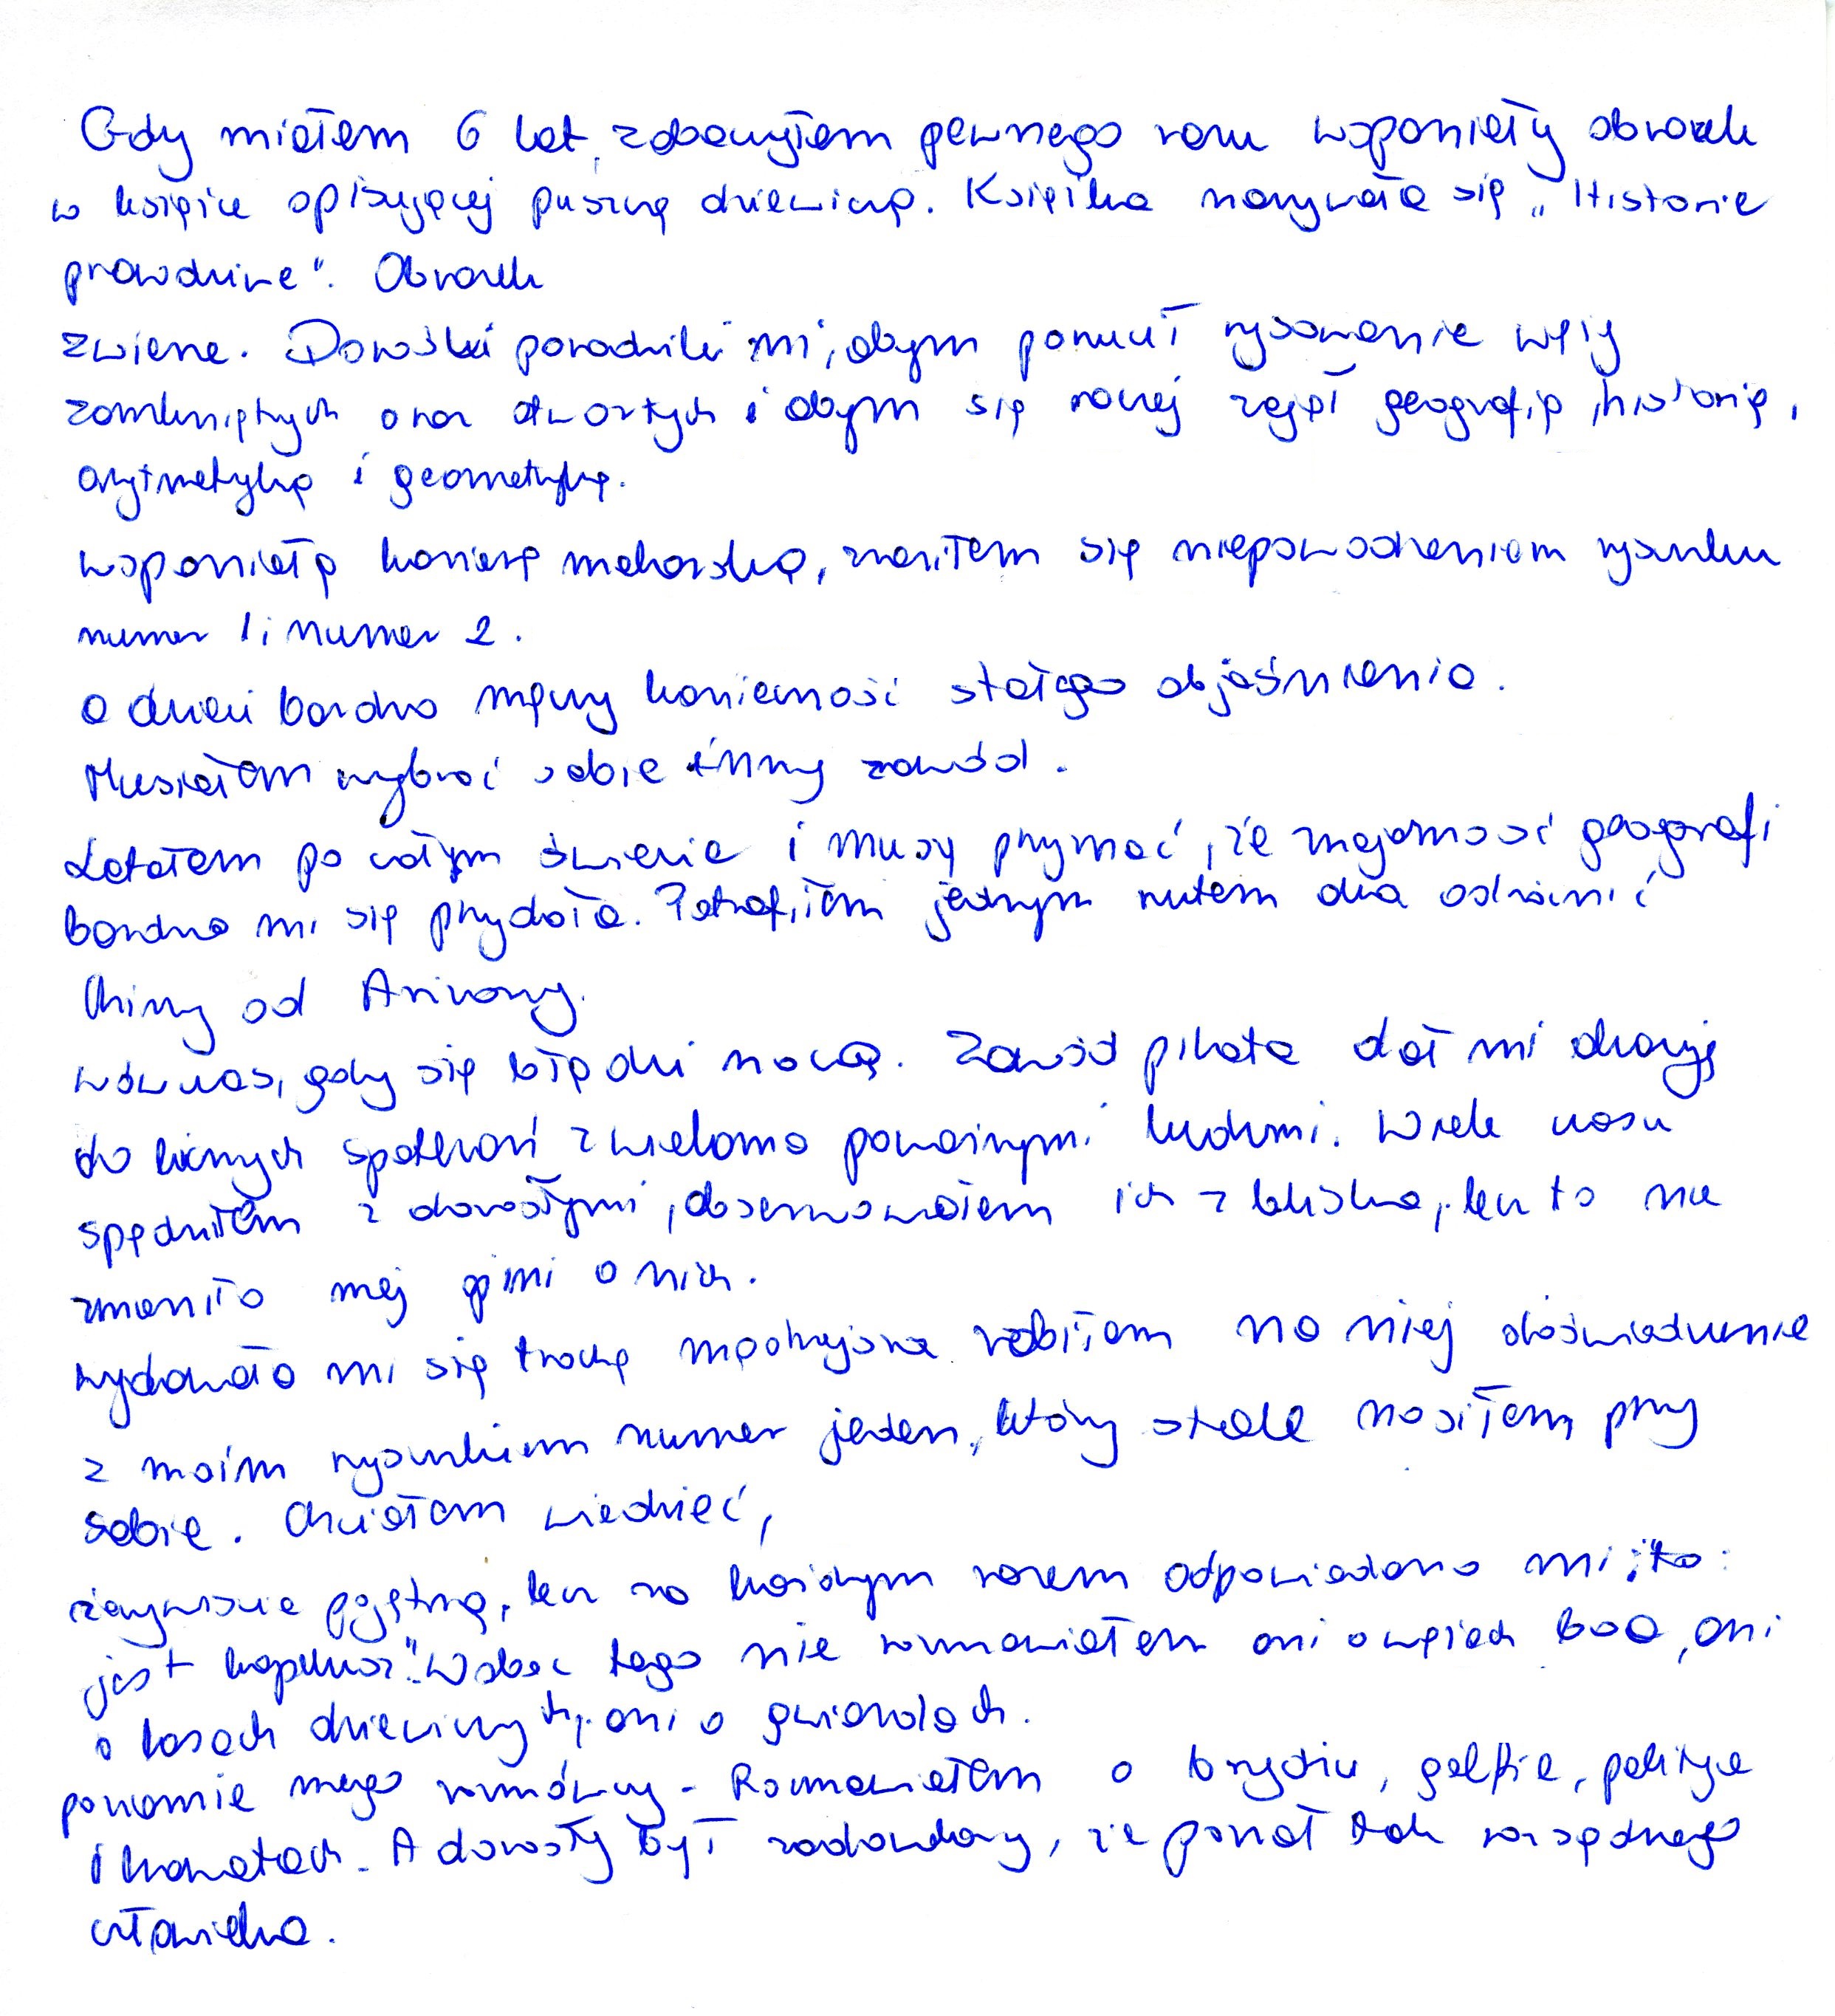 Gdy miałem 6 lat, zobaczyłem pewnego razu wspaniały obrazek
w książce opisującej puszczę dziewiczą. Książka nazywała się „Historie
prawdziwe". Obrazek
zwierzę. Dorośli poradzili mi, abym porzucił rysowanie węży
zamkniętych oraz otwartych i abym się raczej zajął geografią, historią,
arytmetyką i gramatyką.
wspaniałą karierę malarską, zraziłem się niepowodzeniem rysunku
numer 1 i numer 2.
a dzieci bardzo męczy konieczność stałego objaśniania.
Musiałem wybrać sobie inny zawód.
Latałem po całym świecie i muszę przyznać, że znajomość geografi
bardzo mi się przydała. Potrafiłem jednym rzutem oka odróżnić
Chiny od Arizony.
wówczas, gdy się błądzi nocą. Zawód pilota dał mi okazję
do licznych spotkań z wieloma poważnymi ludźmi. Wiele czasu
spędziłem z dorosłymi, obserwowałem ich z bliska, lecz to nie
zmieniło mej opinii o nich.
wydawała mi się trochę mądrzejsza robiłem na niej doświadczenie
z moim rysunkiem numer jeden, który stale nosiłem przy
sobie. Chciałem wiedzieć,
rzeczywiście pojętną, lecz za każdym razem odpowiadano mi: „to
jest kapelusz". Wobec tego nie rozmawiałem ani o wężach boa, ani
o lasach dziewiczych, ani o gwiazdach.
poziomie mego rozmówcy. Rozmawiałem o brydżu, golfie, polityce
i krawatach. A dorosły był zadowolony, że poznał tak rozsądnego
człowieka.